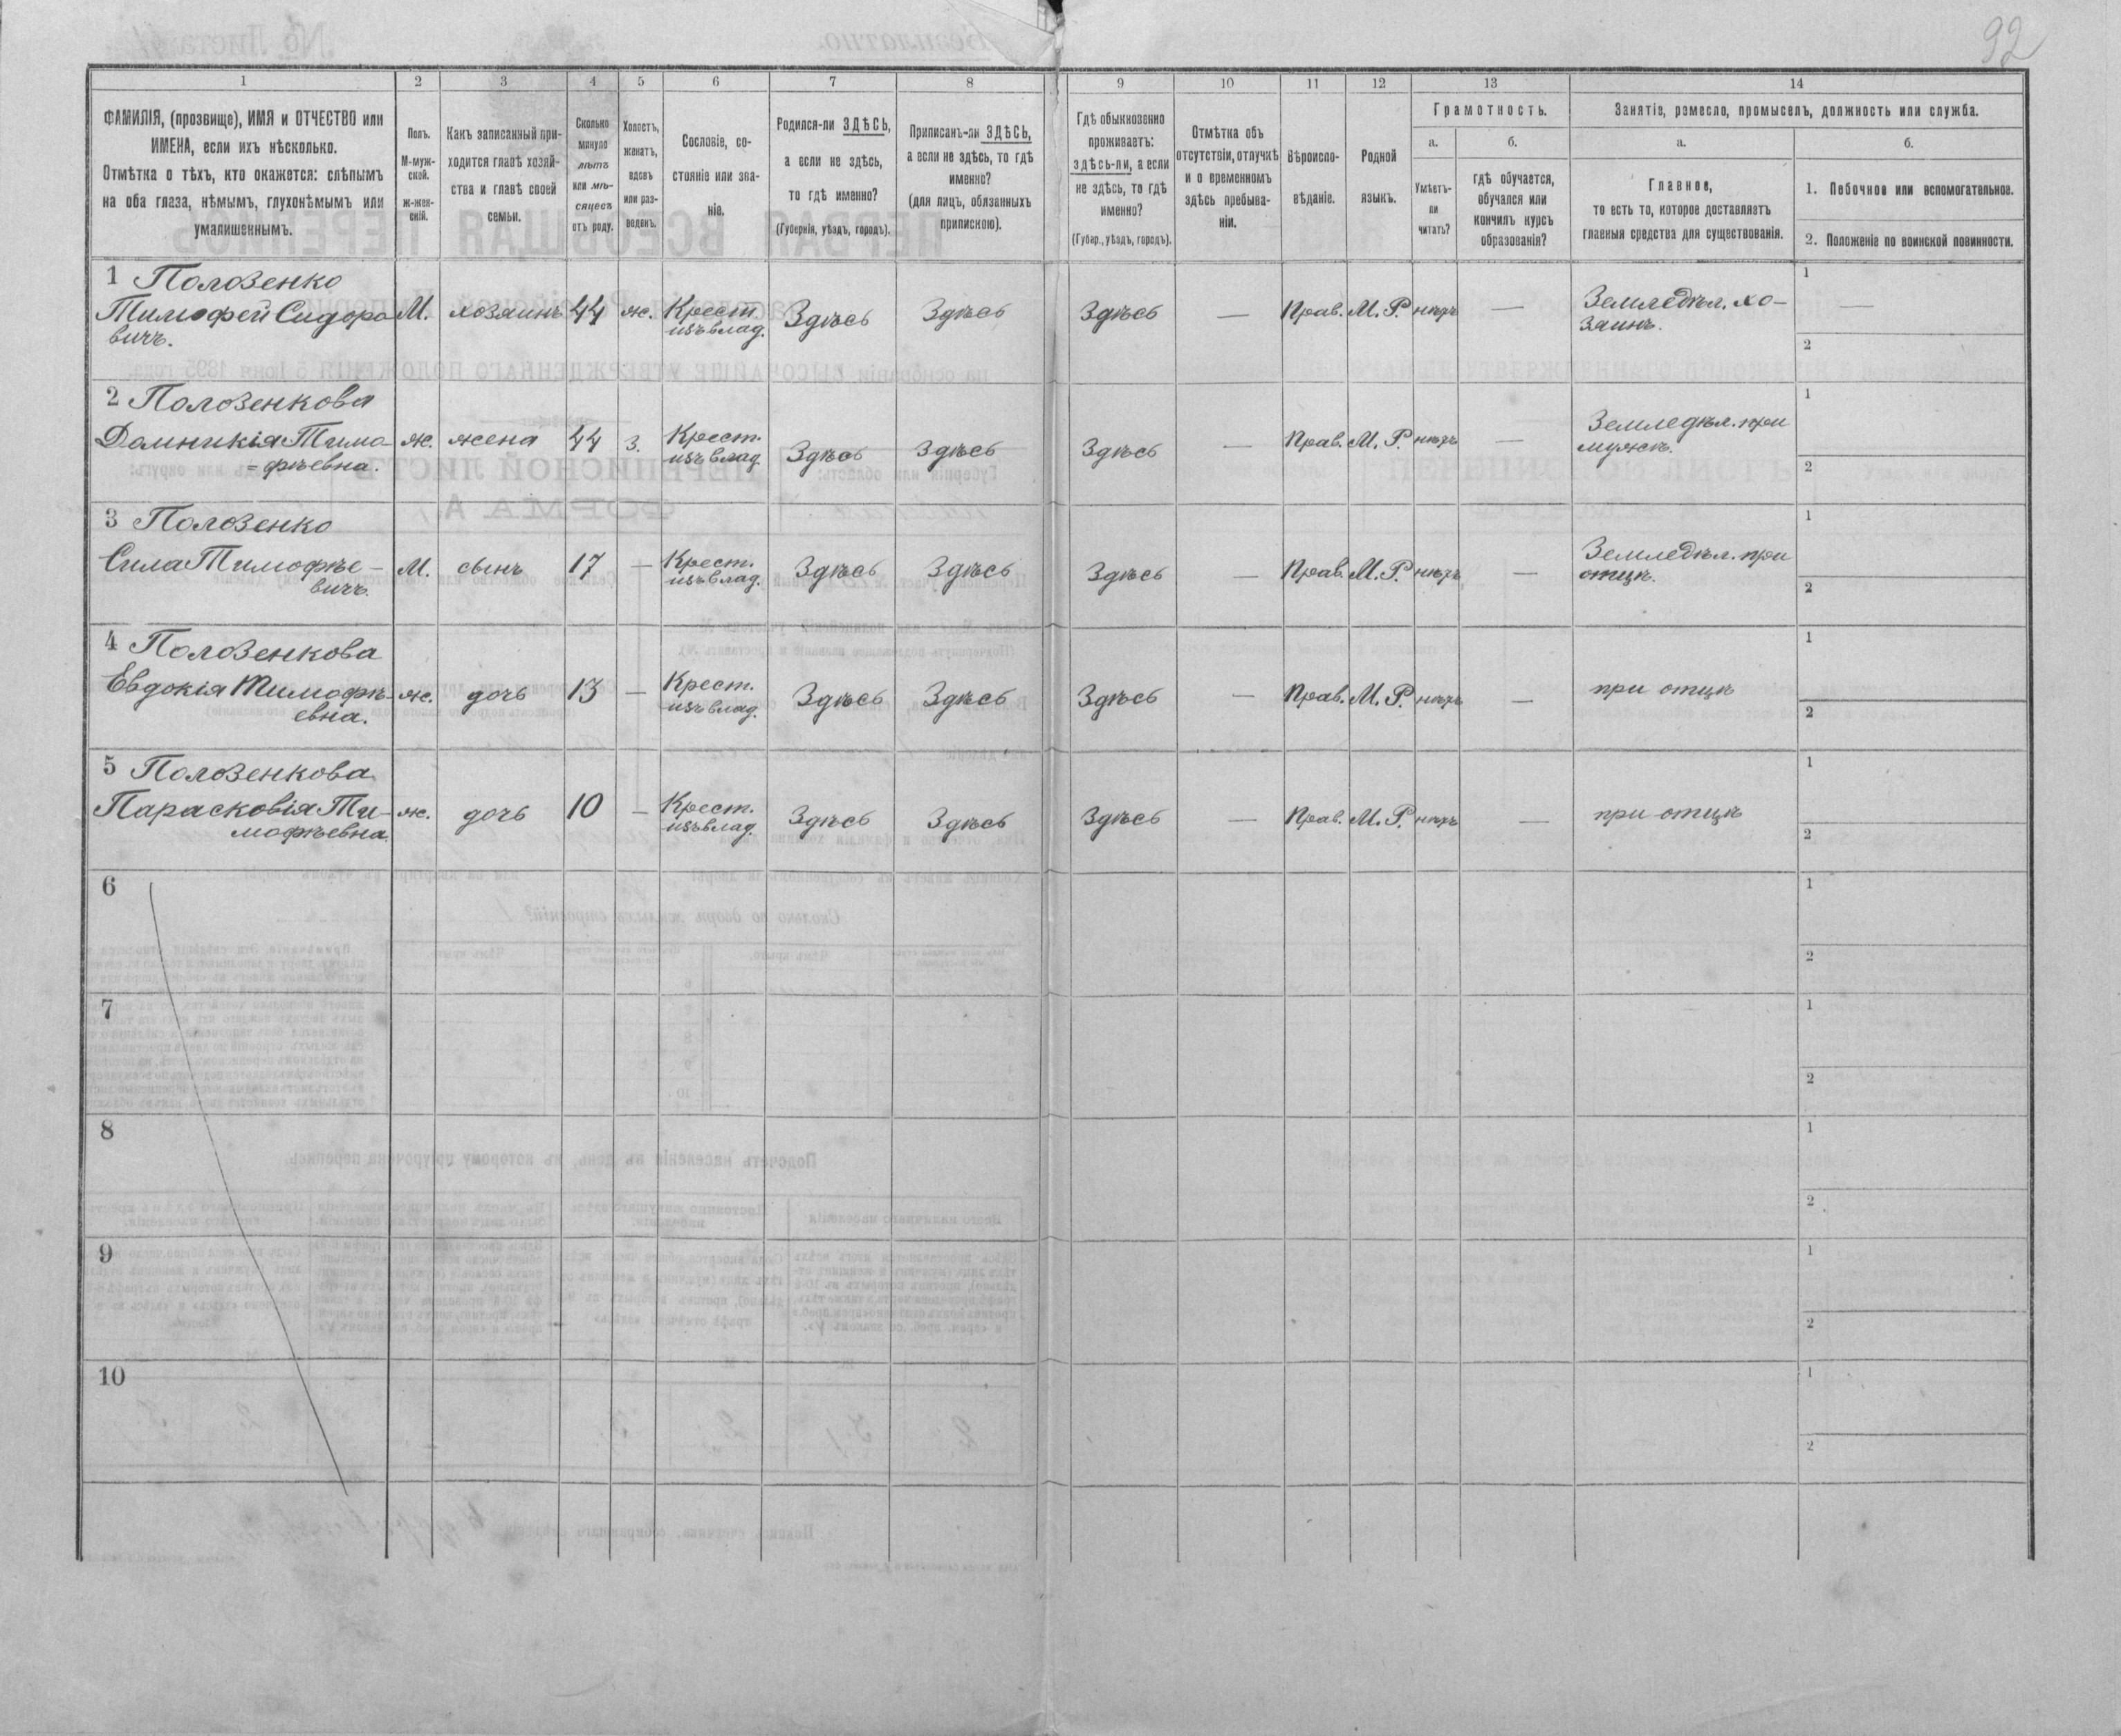 92
1 2 3 4 5 6 7 8 9 10 11 12 13 14
ФАМИЛІЯ, (прозвище), ИМЯ и ОТЧЕСТВО или
ИМЕНА, если ихъ нѣсколько.
Отмѣтка о тѣхъ, кто окажется: слѣпымъ
на оба глаза, нѣмымъ, глухонѣмымъ или
умалишеннымъ.
Полъ.
М-муж-
ской.
ж-жен-
скій.
Какъ записанный при-
ходится главѣ хозяй-
ства и главѣ своей
семьи.
Сколько
минуло
лѣтъ
или мѣ-
сяцевъ
отъ роду.
Холостъ,
женатъ,
вдовъ
или раз-
веденъ.
Сословіе, со-
стояніе или зва-
ніе.
Родился-ли ЗДѢСЬ,
а если не здѣсь,
то гдѣ именно?
(Губернія, уѣздъ, городъ).
Приписанъ-ли ЗДѢСЬ,
а если не здѣсь, то гдѣ
именно?
(для лицъ, обязанныхъ
припискою).
Гдѣ обыкновенно
проживаетъ:
здѣсь-ли, а если
не здѣсь, то гдѣ
именно?
(Губер., уѣздъ, городъ).
Отмѣтка объ
отсутствіи, отлучкѣ
и о временномъ
здѣсь пребыва-
ніи.
Вѣроиспо-
вѣданіе.
Родной
языкъ.
Грамотность.
а.
Умѣетъ-
ли
читать?
б.
гдѣ обучается,
обучался или
кончилъ курсъ
образованія?
Занятіе, ремесло, промыселъ, должность или служба.
а.
Главное,
то есть то, которое доставляетъ
главныя средства для существованія.
б.
1. Побочное или вспомогательное.
2. Положеніе по воинской повинности.
1 Полозенко
Тимофей Сидоро
вичъ.
М. хозяинъ 44 ж.
Крест.
изъ влад.
Здѣсь Здѣсь Здѣсь — Прав. М. Р. нѣтъ —
Земледѣл. хо-
зяинъ.
1 —
2
2 Полозенкова
Домникія Тимо-
=фѣевна.
ж. жена 44 з.
Крест.
изъ влад.
Здѣсь Здѣсь Здѣсь — Прав. М. Р. нѣтъ —
Земледѣл. при
мужѣ.
1
2
3 Полозенко
Сила Тимофѣе-
вичъ.
М. сынъ 17 —
Крест.
изъ влад.
Здѣсь Здѣсь Здѣсь — Прав. М. Р. нѣтъ —
Земледѣл. при
отцѣ.
1
2
4 Полозенкова
Евдокія Тимофѣ-
евна.
ж. дочь 13 —
Крест.
изъ влад.
Здѣсь Здѣсь Здѣсь — Прав. М. Р. нѣтъ —
при отцѣ
1
2
5 Полозенкова
Парасковія Ти-
мофѣевна.
ж. дочь 10 —
Крест.
изъ влад.
Здѣсь Здѣсь Здѣсь — Прав. М. Р. нѣтъ —
при отцѣ
1
2
6
1
2
7
1
2
8
1
2
9
1
2
10
1
2